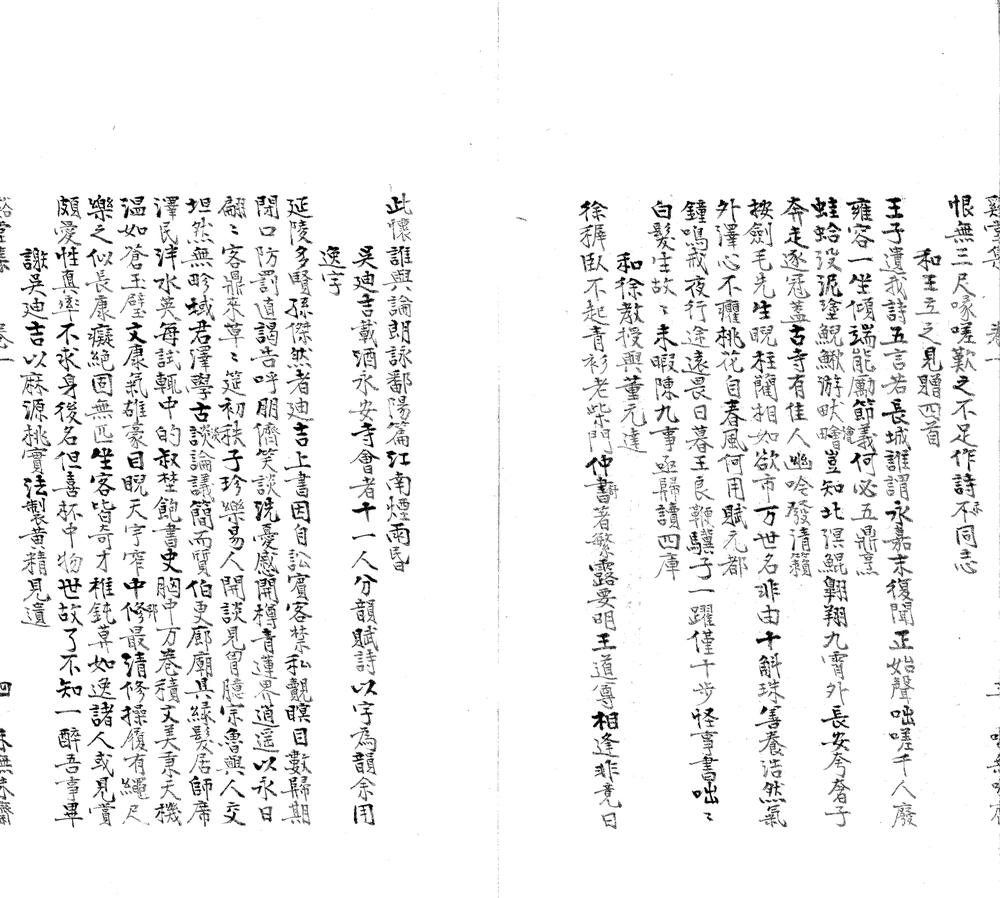 恨無三尺喙嗟歎之不足作詩示同志
和王立之見贈四首
王子遺我詩五言若長城誰謂永嘉末復聞正始聲咄嗟千人廢
雍容一坐傾端能勵節義何必五鼎烹
蛙蛤没泥塗鯢鰍游畎澮豈知北溟鯤翺翔九霄外長安夸奢子
奔走逐冠蓋古寺有佳人幽唫發清籟
按劍毛先生睨柱藺相如欲市万世名非由十斛珠善養浩然氣
外澤心不癯桃花自春風何用賦元都
鐘鳴戒夜行途遠畏日暮王良鞭驥子一躍僅千步怪事書咄〻
白髮生故〻未暇陳九事亟歸讀四庫
和徐教授與董元達
徐穉臥不起青衫老柴門仲舒著繁露要明王道尊相逢非竟日
此懷誰與論朗詠鄱陽篇江南煙雨昏
吳迪吉載酒永安寺會者十一人分韻賦詩以字為韻余用
逸字
延陵多賢孫傑然者迪吉上書因自訟賓客禁私覿瞑目數歸期
閉口防罰直謁告呼朋儕笑談洗憂慼開樽青蓮界逍遥以永日
翩〻客鼎來草〻筵初秩子珍樂易人開談見胷臆宗魯與人交
坦然無畛域君澤學古談論議簡而質伯更廊廟具緑髮居師席
澤民泮水英每試輒中的叔埜飽書史胸中万卷積文美秉天機
温如蒼玉璧文康氣雄豪目睨天宇窄中修最清修操履有繩尺
樂之似長康癡絶固無匹坐客皆奇才椎鈍莫如逸諸人或見賞
頗愛性真率不求身後名但喜杯中物世故了不知一醉吾事畢
謝吳迪吉以麻源桃實法製黃精見遺